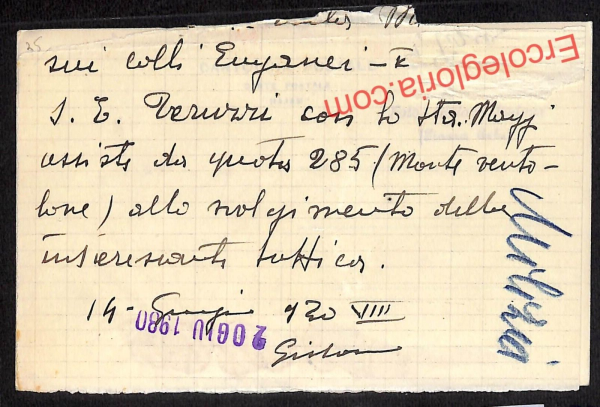 sui colli Euganei - x
S. E. con lo Sta. Magg
assiste da quota 285 (Monte vento-
lone) allo svolgimento della
interessante tattica.
14 - Giugno 930 VIII
2 GIU 1980
Milizia
Ercolegloria.com
25